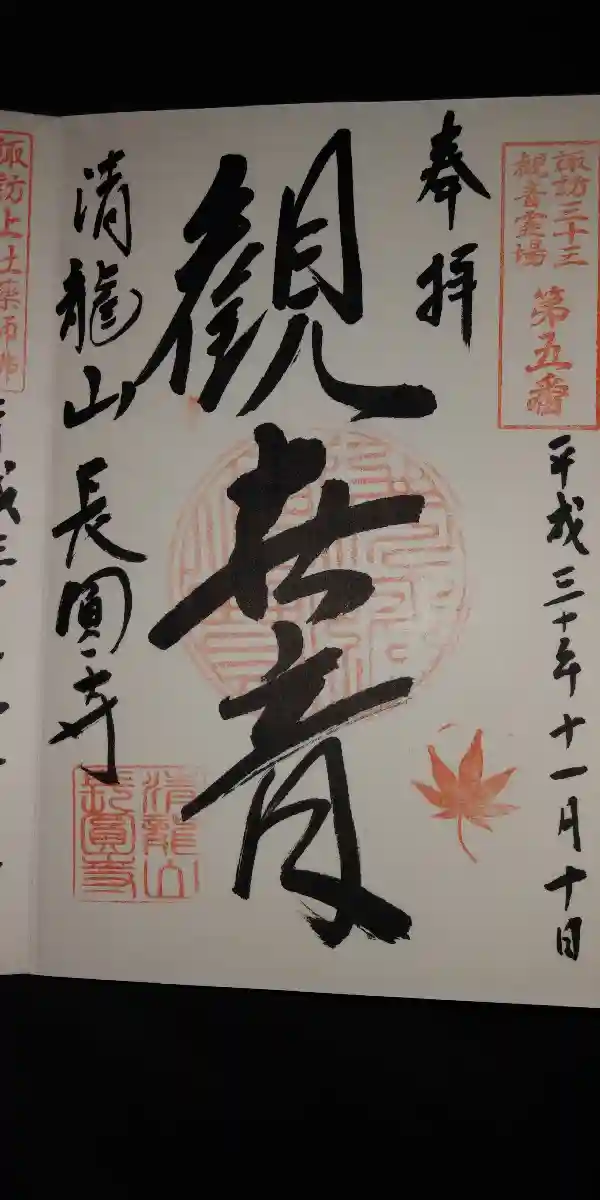 諏訪三十三
観音霊場
第五番
平成三十年十一月十日
奉拝
觀世音
清龍山 長圓寺
清龍山
長圓寺
諏訪上土薬師